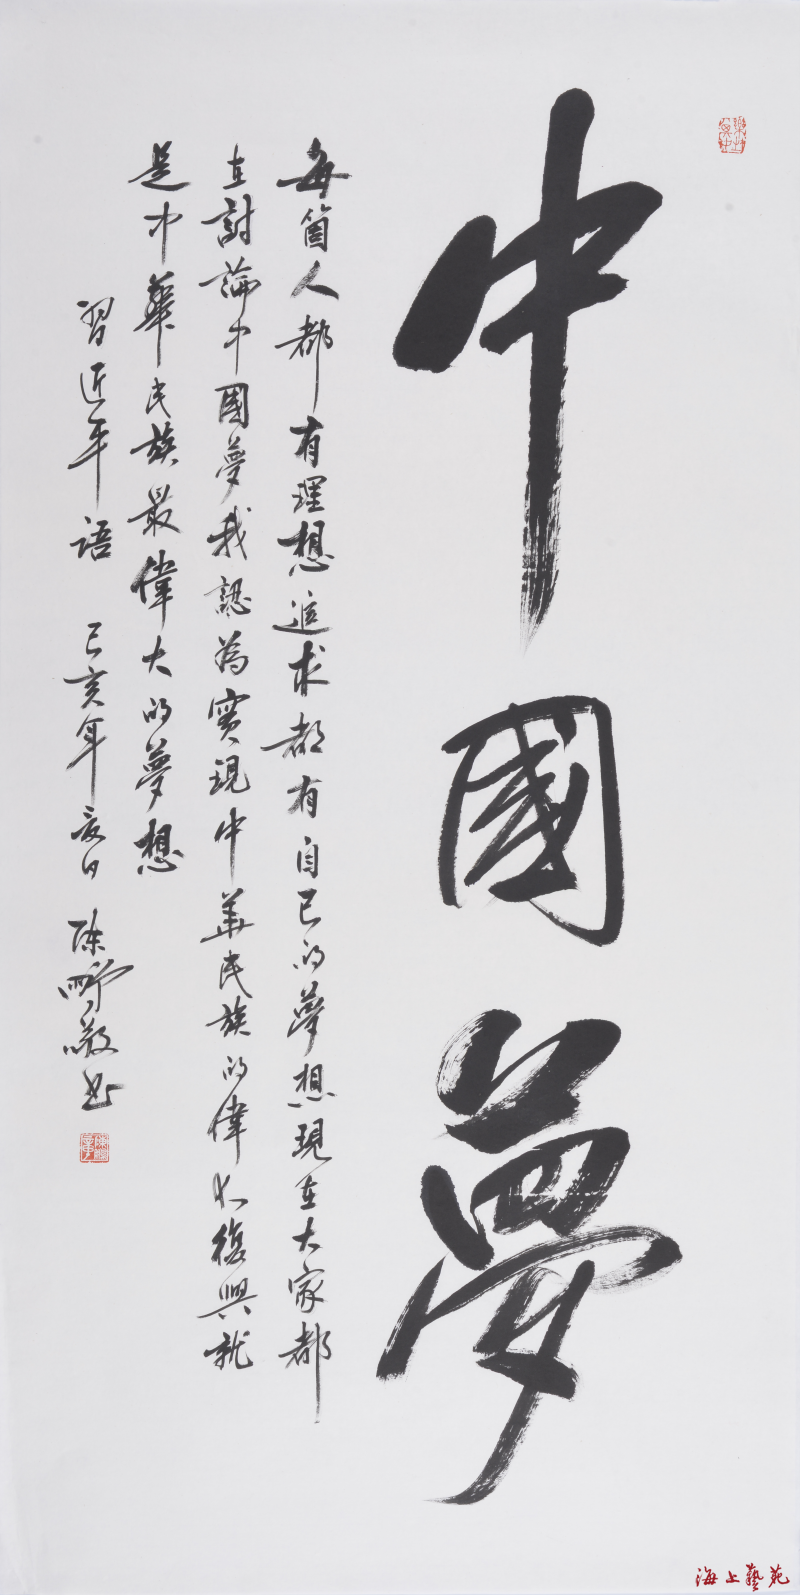 中國夢
每箇人都有理想追求都有自己的夢想現在大家都
在討論中國夢我認為實現中華民族的偉大復興就
是中華民族最偉大的夢想
習近平语 己亥年夏日 陈野敬书
海上藝苑